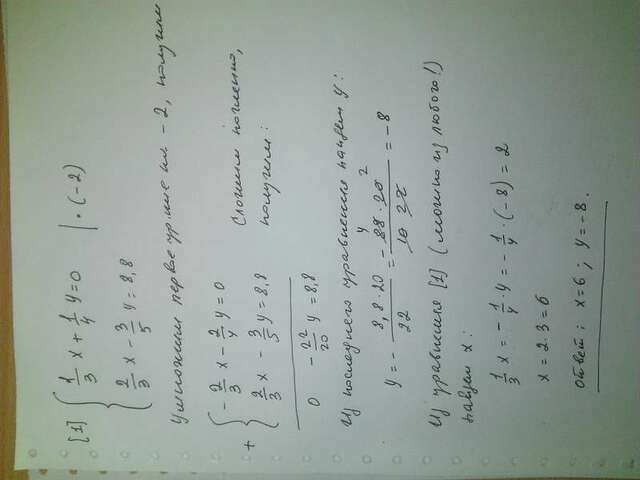 [1] { 1/3 x + 1/4 y = 0 | · (-2)
2/3 x - 3/5 y = 8,8
Умножим первое ур-ние на -2, получим
+ { -2/3 x - 2/4 y = 0 Сложим почленно,
2/3 x - 3/5 y = 8,8 получим:
0 - 22/20 y = 8,8
Из последнего уравнения найдем y:
y = - 8,8·20/22 = - 88·20/10 22 = -8
4 2
Из уравнения [1] (можно из любого!)
найдем x:
1/3 x = - 1/4 · y = - 1/4 · (-8) = 2
x = 2·3 = 6
Ответ: x=6; y=-8.